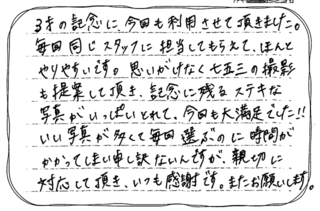 3才の記念に今回も利用させて頂きました。
毎回同じスタッフに担当してもらえて、ほんと
やりやすいです。思いがけなく七五三の撮影
も提案して頂き、記念に残るステキな
写真がいっぱいとれて、今回も大満足でした!!
いい写真が多くて毎回選ぶのに時間が
かかってしまい申し訳ないんですが、親切に
対応して頂き、いつも感謝です。またお願いします。